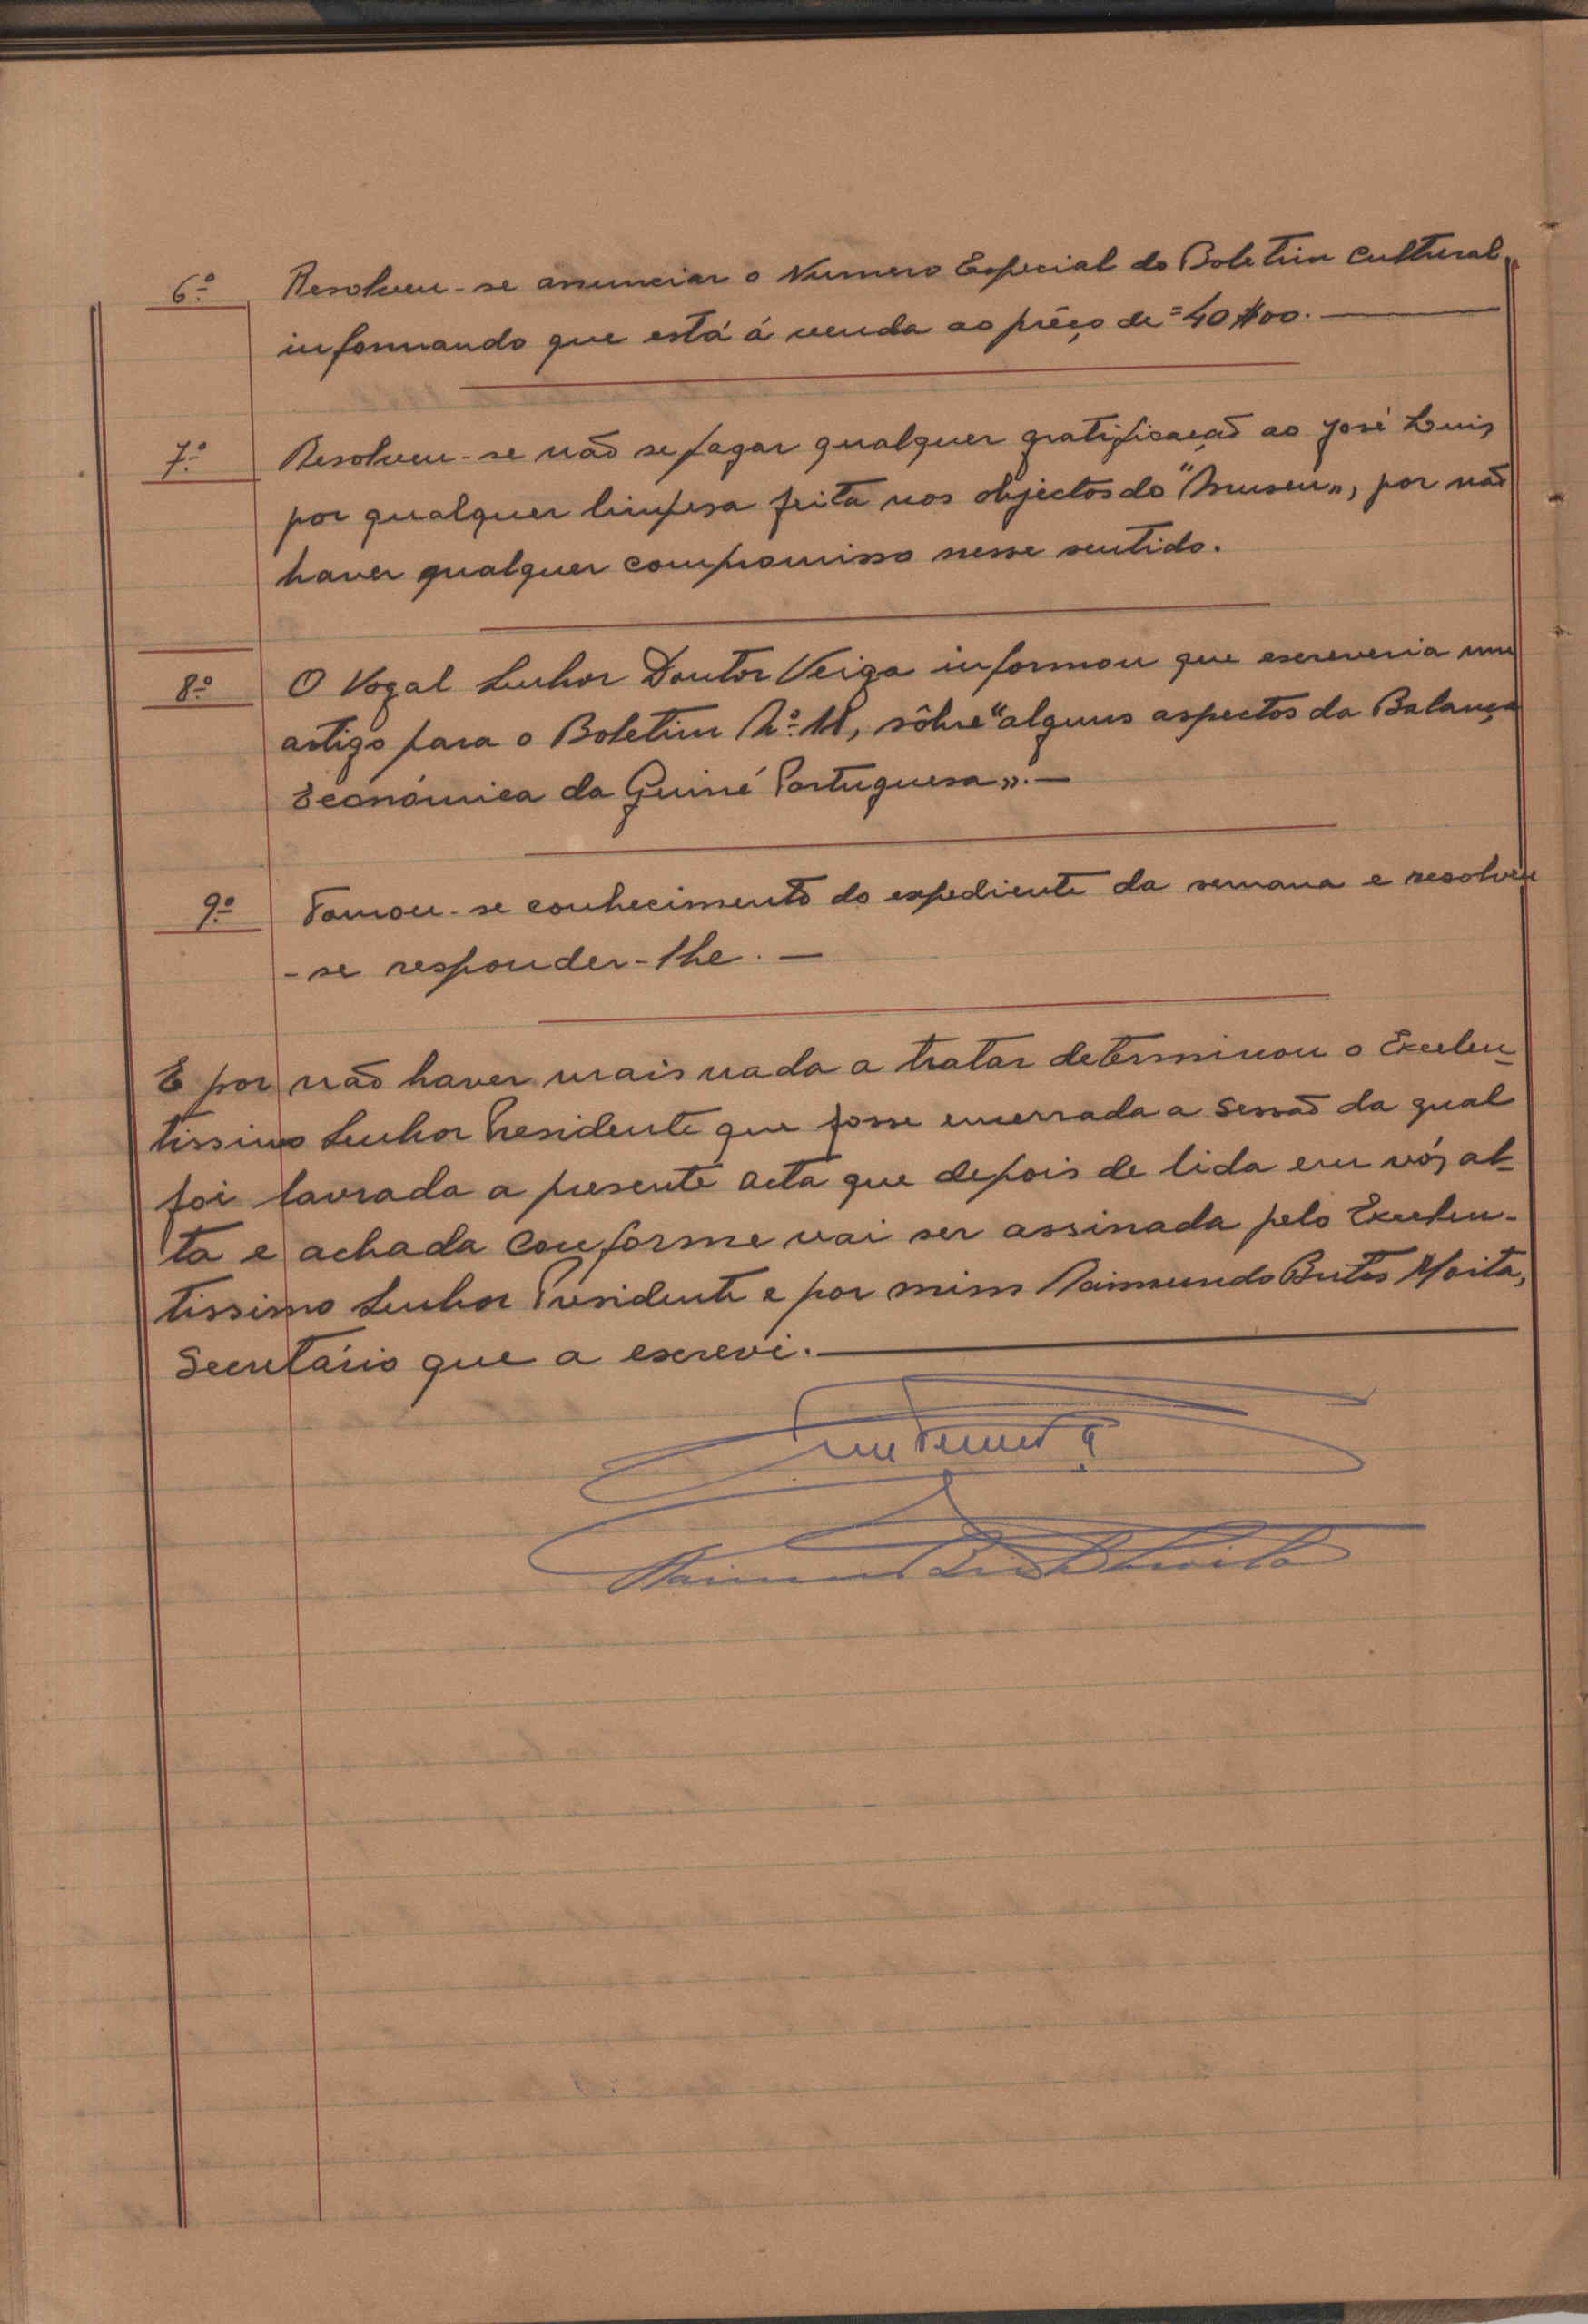 6.º Resolveu-se anunciar o Numero Especial do Boletim Cultural,
informando que está á venda ao prêço de = 40$00. —
7.º Resolveu-se não se pagar qualquer gratificação ao José Luis,
por qualquer limpesa feita nos objectos do "Museu», por não
haver qualquer compromisso nesse sentido.
8.º O Vogal Senhor Doutor Veiga informou que escreveria um
artigo para o Boletim N.º 11, sôbre "alguns aspectos da Balança
Económica da Guiné Portuguesa». —
9.º Tomou-se conhecimento do expediente da semana e resolveu
-se responder-lhe. —
E por não haver mais nada a tratar determinou o Excelen-
tissimo Senhor Presidente que fosse encerrada a Sessão da qual
foi lavrada a presente acta que depois de lida em vóz al-
ta e achada conforme vai ser assinada pelo Excelen-
tissimo Senhor Presidente e por mim Raimundo Brites Moita,
Secretário que a escrevi. —